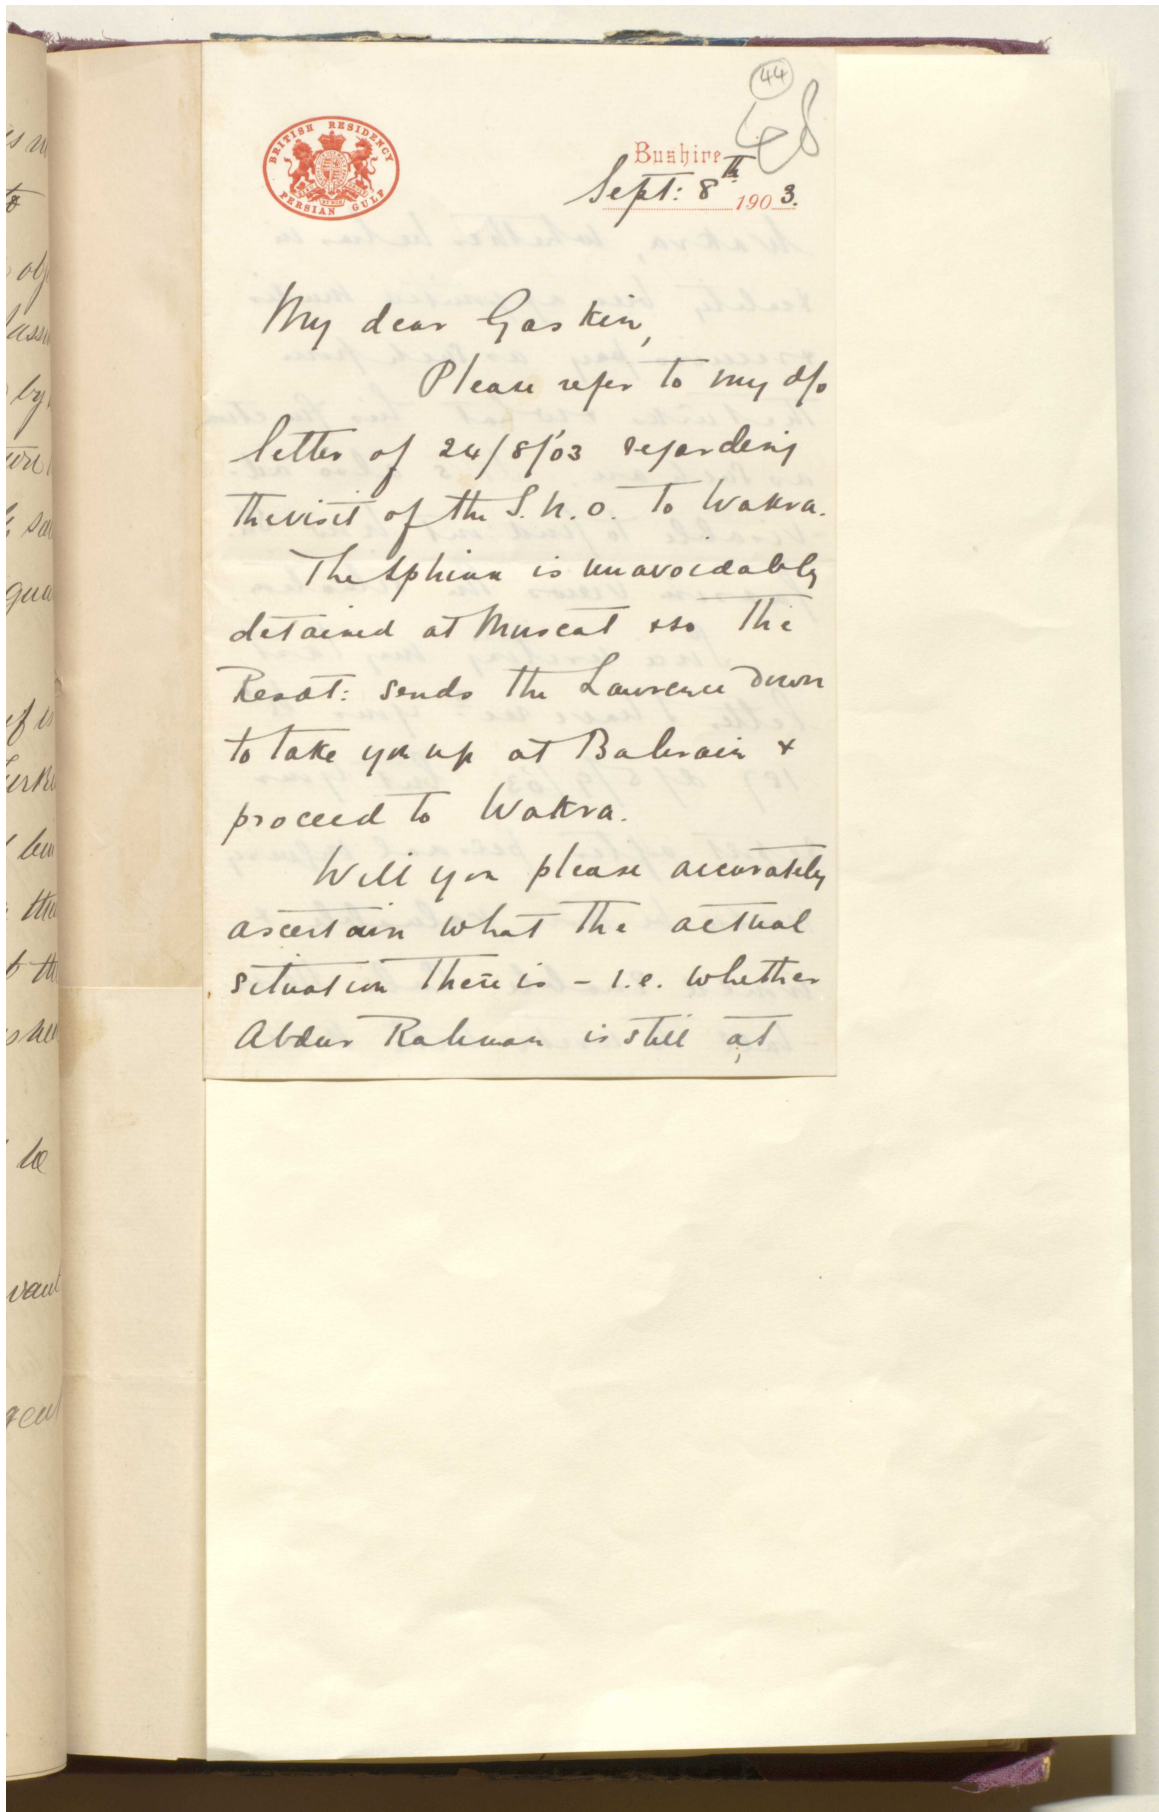 44
48
BRITISH RESIDENCY
PERSIAN GULF
Bushire
Sept: 8th 1903.
My dear Gaskin,
Please refer to my d/o
letter of 24/8/03 regarding
the visit of the S.N.O. to Wakra.
The Sphinx is unavoidably
detained at Muscat & so the
Resdt: sends the Lawrence down
to take you up at Bahrain &
proceed to Wakra.
Will you please accurately
ascertain what the actual
situation there is - i.e. whether
Abdur Rahman is still at